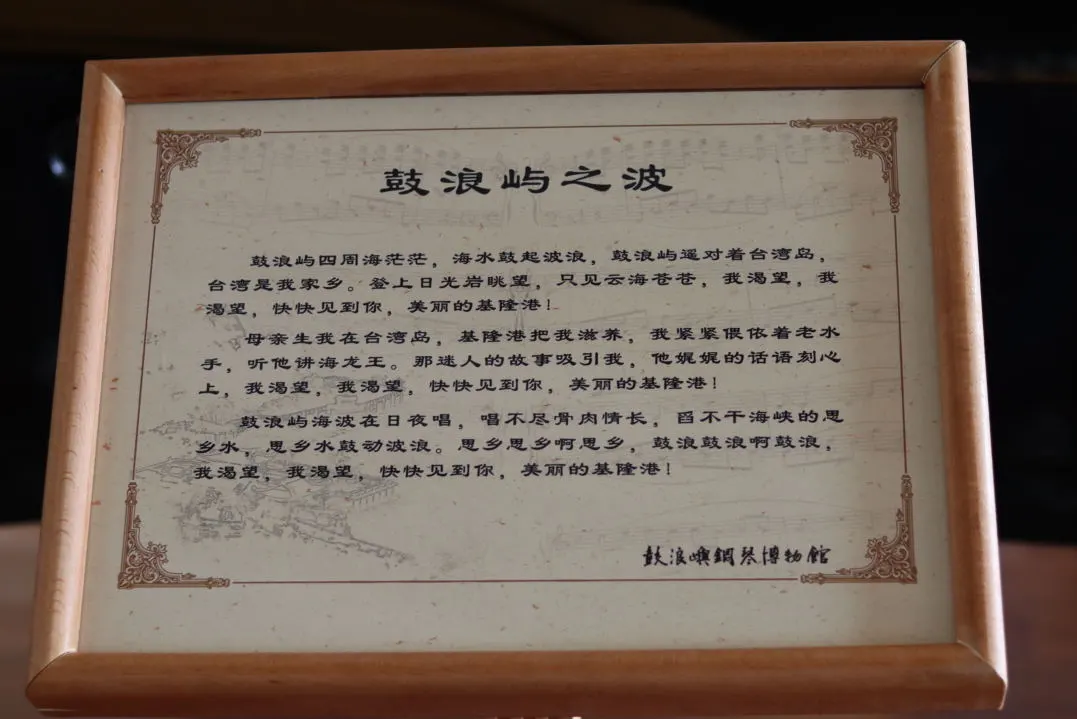 鼓浪屿之波
鼓浪屿四周海茫茫，海水鼓起波浪，鼓浪屿遥对着台湾岛，
台湾是我家乡。登上日光岩眺望，只见云海苍苍，我渴望，我
渴望，快快见到你，美丽的基隆港！
母亲生我在台湾岛，基隆港把我滋养，我紧紧偎依着老水
手，听他讲海龙王。那迷人的故事吸引我，他娓娓的话语刻心
上，我渴望，我渴望，快快见到你，美丽的基隆港！
鼓浪屿海波在日夜唱，唱不尽骨肉情长，舀不干海峡的思
乡水，思乡水鼓动波浪。思乡思乡啊思乡，鼓浪鼓浪啊鼓浪，
我渴望，我渴望，快快见到你，美丽的基隆港！
鼓浪嶼鋼琴博物館